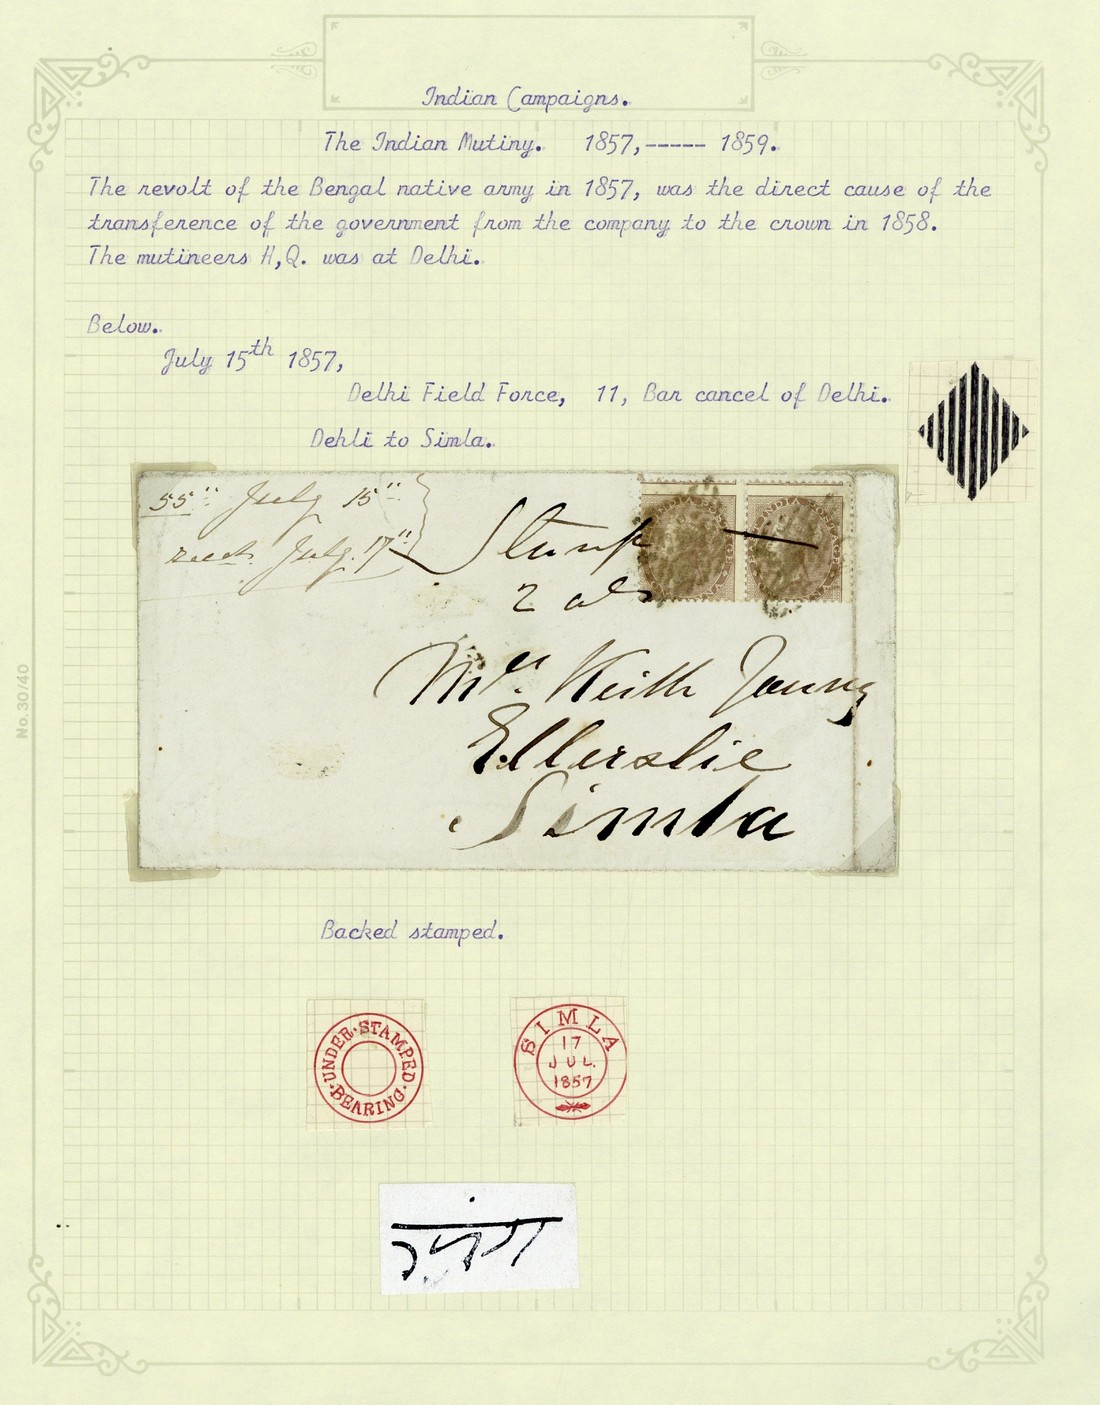 Indian Campaigns.
The Indian Mutiny. 1857,----- 1859.
The revolt of the Bengal native army in 1857, was the direct cause of the
transference of the government from the company to the crown in 1858.
The mutineers H,Q. was at Delhi.
Below.
July 15th 1857,
Delhi Field Force, 11, Bar cancel of Delhi.
Dehli to Simla.
55" July 15"
recd. July. 17"
Stamp
2 as
INDIA POSTAGE
Mrs. Keith Young
Ellerslie
Simla
No.30/40
Backed stamped.
UNDER·STAMPED·
BEARING·
SIMLA
17
JUL.
1857